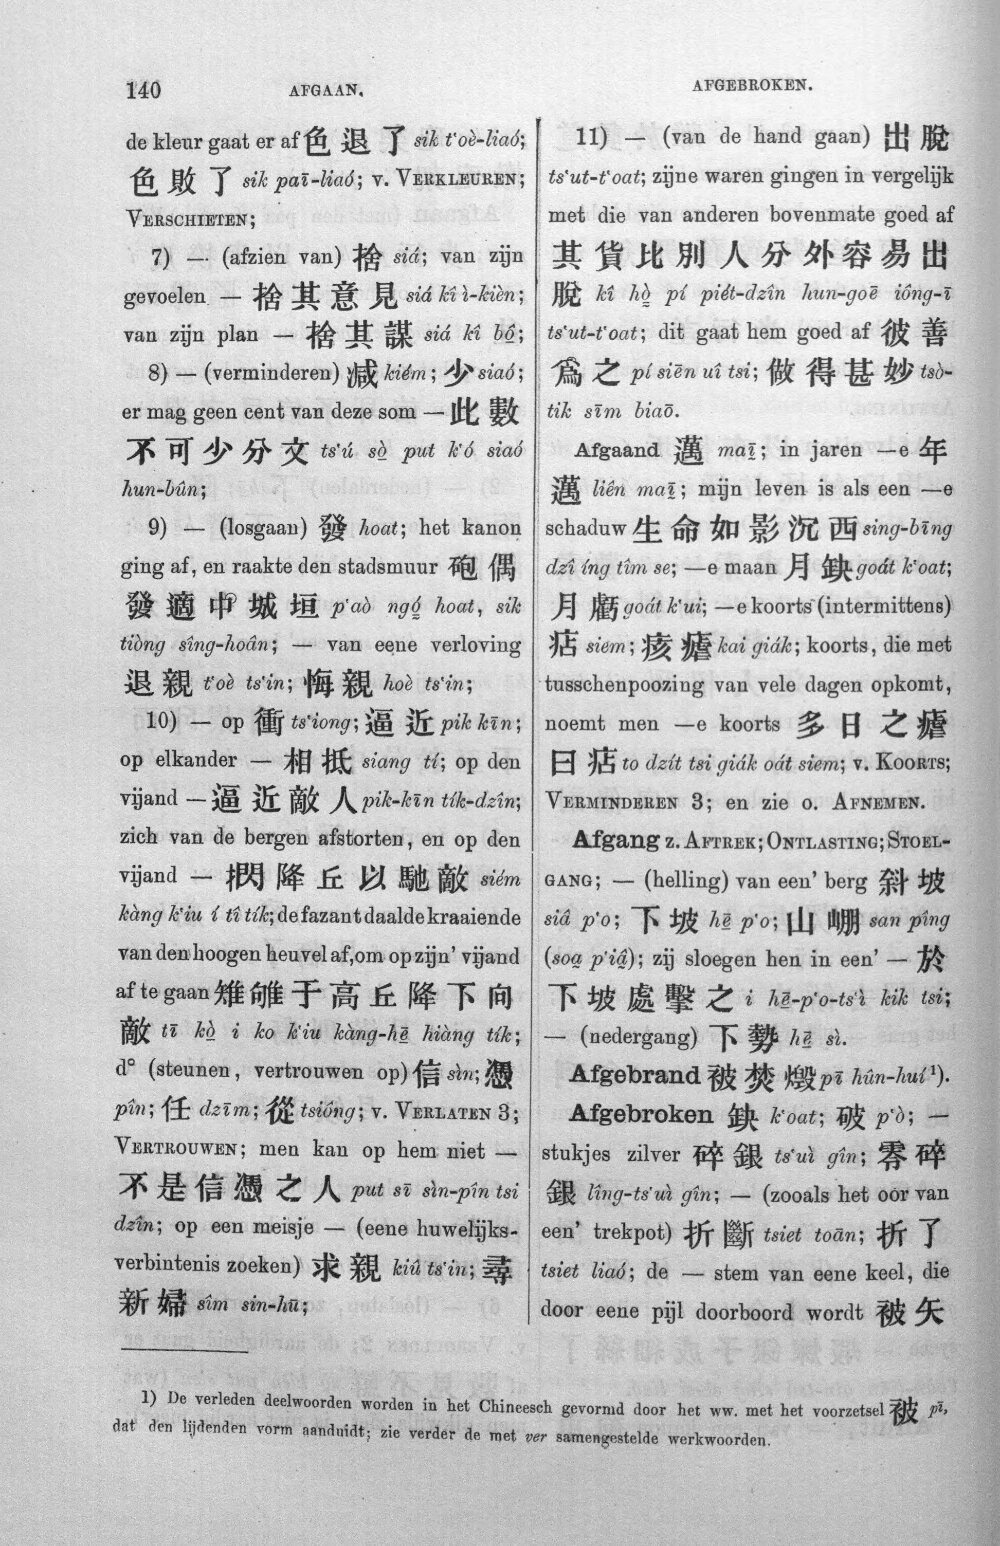 140
AFGAAN.
AFGEBROKEN.
de kleur gaat er af 色退了 sik t‘oè-liaó;
色敗了 sik paī-liaó; v. VERKLEUREN;
VERSCHIETEN;
7) — (afzien van) 捨 siá; van zijn
gevoelen — 捨其意見 siá kî ì-kièn;
van zijn plan — 捨其謀 siá kî bô̤;
8) — (verminderen) 減 kiém; 少 siaó;
er mag geen cent van deze som — 此數
不可少分文 ts‘ú sò̤ put k‘ó siaó
hun-bûn;
9) — (losgaan) 發 hoat; het kanon
ging af, en raakte den stadsmuur 砲偶
發適中城垣 p‘aò ngó̤ hoat, sik
tiòng sîng-hoân; — van eene verloving
退親 t‘oè ts‘in; 悔親 hoè ts‘in;
10) — op 衝 ts‘iong; 逼近 pik kīn;
op elkander — 相抵 siang tí; op den
vijand — 逼近敵人 pik-kīn tík-dzîn;
zich van de bergen afstorten, en op den
vijand — 閃降丘以馳敵 siém
kàng k‘iu í tî tík; de fazant daalde kraaiende
van den hoogen heuvel af, om op zijn’ vijand
af te gaan 雉雊于高丘降下向
敵 tī kò̤ i ko k‘iu kàng-hē̤ hiàng tík;
d° (steunen, vertrouwen op) 信 sìn; 憑
pîn; 任 dzīm; 從 tsiông; v. VERLATEN 3;
VERTROUWEN; men kan op hem niet —
不是信憑之人 put sī sìn-pîn tsi
dzîn; op een meisje — (eene huwelijks-
verbintenis zoeken) 求親 kiû ts‘in; 尋
新婦 sîm sin-hū;
11) — (van de hand gaan) 出脫
ts‘ut-t‘oat; zijne waren gingen in vergelijk
met die van anderen bovenmate goed af
其貨比別人分外容易出
脫 kî hò̤ pí piét-dzîn hun-goē iông-ī
ts‘ut-t‘oat; dit gaat hem goed af 彼善
爲之 pí siēn uî tsi; 做得甚妙 tsò-
tik sīm biaō.
Afgaand 邁 maī̤; in jaren —e 年
邁 liên maī̤; mijn leven is als een —e
schaduw 生命如影沉西 sing-bīng
dzî íng tîm se; —e maan 月缺 goát k‘oat;
月虧 goát k‘ui; —e koorts (intermittens)
痁 siem; 痎瘧 kai giák; koorts, die met
tusschenpoozing van vele dagen opkomt,
noemt men —e koorts 多日之瘧
曰痁 to dzít tsi giák oát siem; v. KOORTS;
VERMINDEREN 3; en zie o. AFNEMEN.
Afgang z. AFTREK; ONTLASTING; STOEL-
GANG; — (helling) van een’ berg 斜坡
siâ p‘o; 下坡 hē̤ p‘o; 山崩 san pîng
(soa̤ p‘iâ̤); zij sloegen hen in een’ — 於
下坡處擊之 i hē̤-p‘o-ts‘ì kik tsi;
— (nedergang) 下勢 hē̤ sì.
Afgebrand 被焚燬 pī hûn-huí ¹).
Afgebroken 缺 k‘oat; 破 p‘ò; —
stukjes zilver 碎銀 ts‘uì gîn; 零碎
銀 lîng-ts‘uì gîn; — (zooals het oor van
een’ trekpot) 折斷 tsiet toān; 折了
tsiet liaó; de — stem van eene keel, die
door eene pijl doorboord wordt 被矢
1) De verleden deelwoorden worden in het Chineesch gevormd door het ww. met het voorzetsel 被 pī,
dat den lijdenden vorm aanduidt; zie verder de met ver samengestelde werkwoorden.